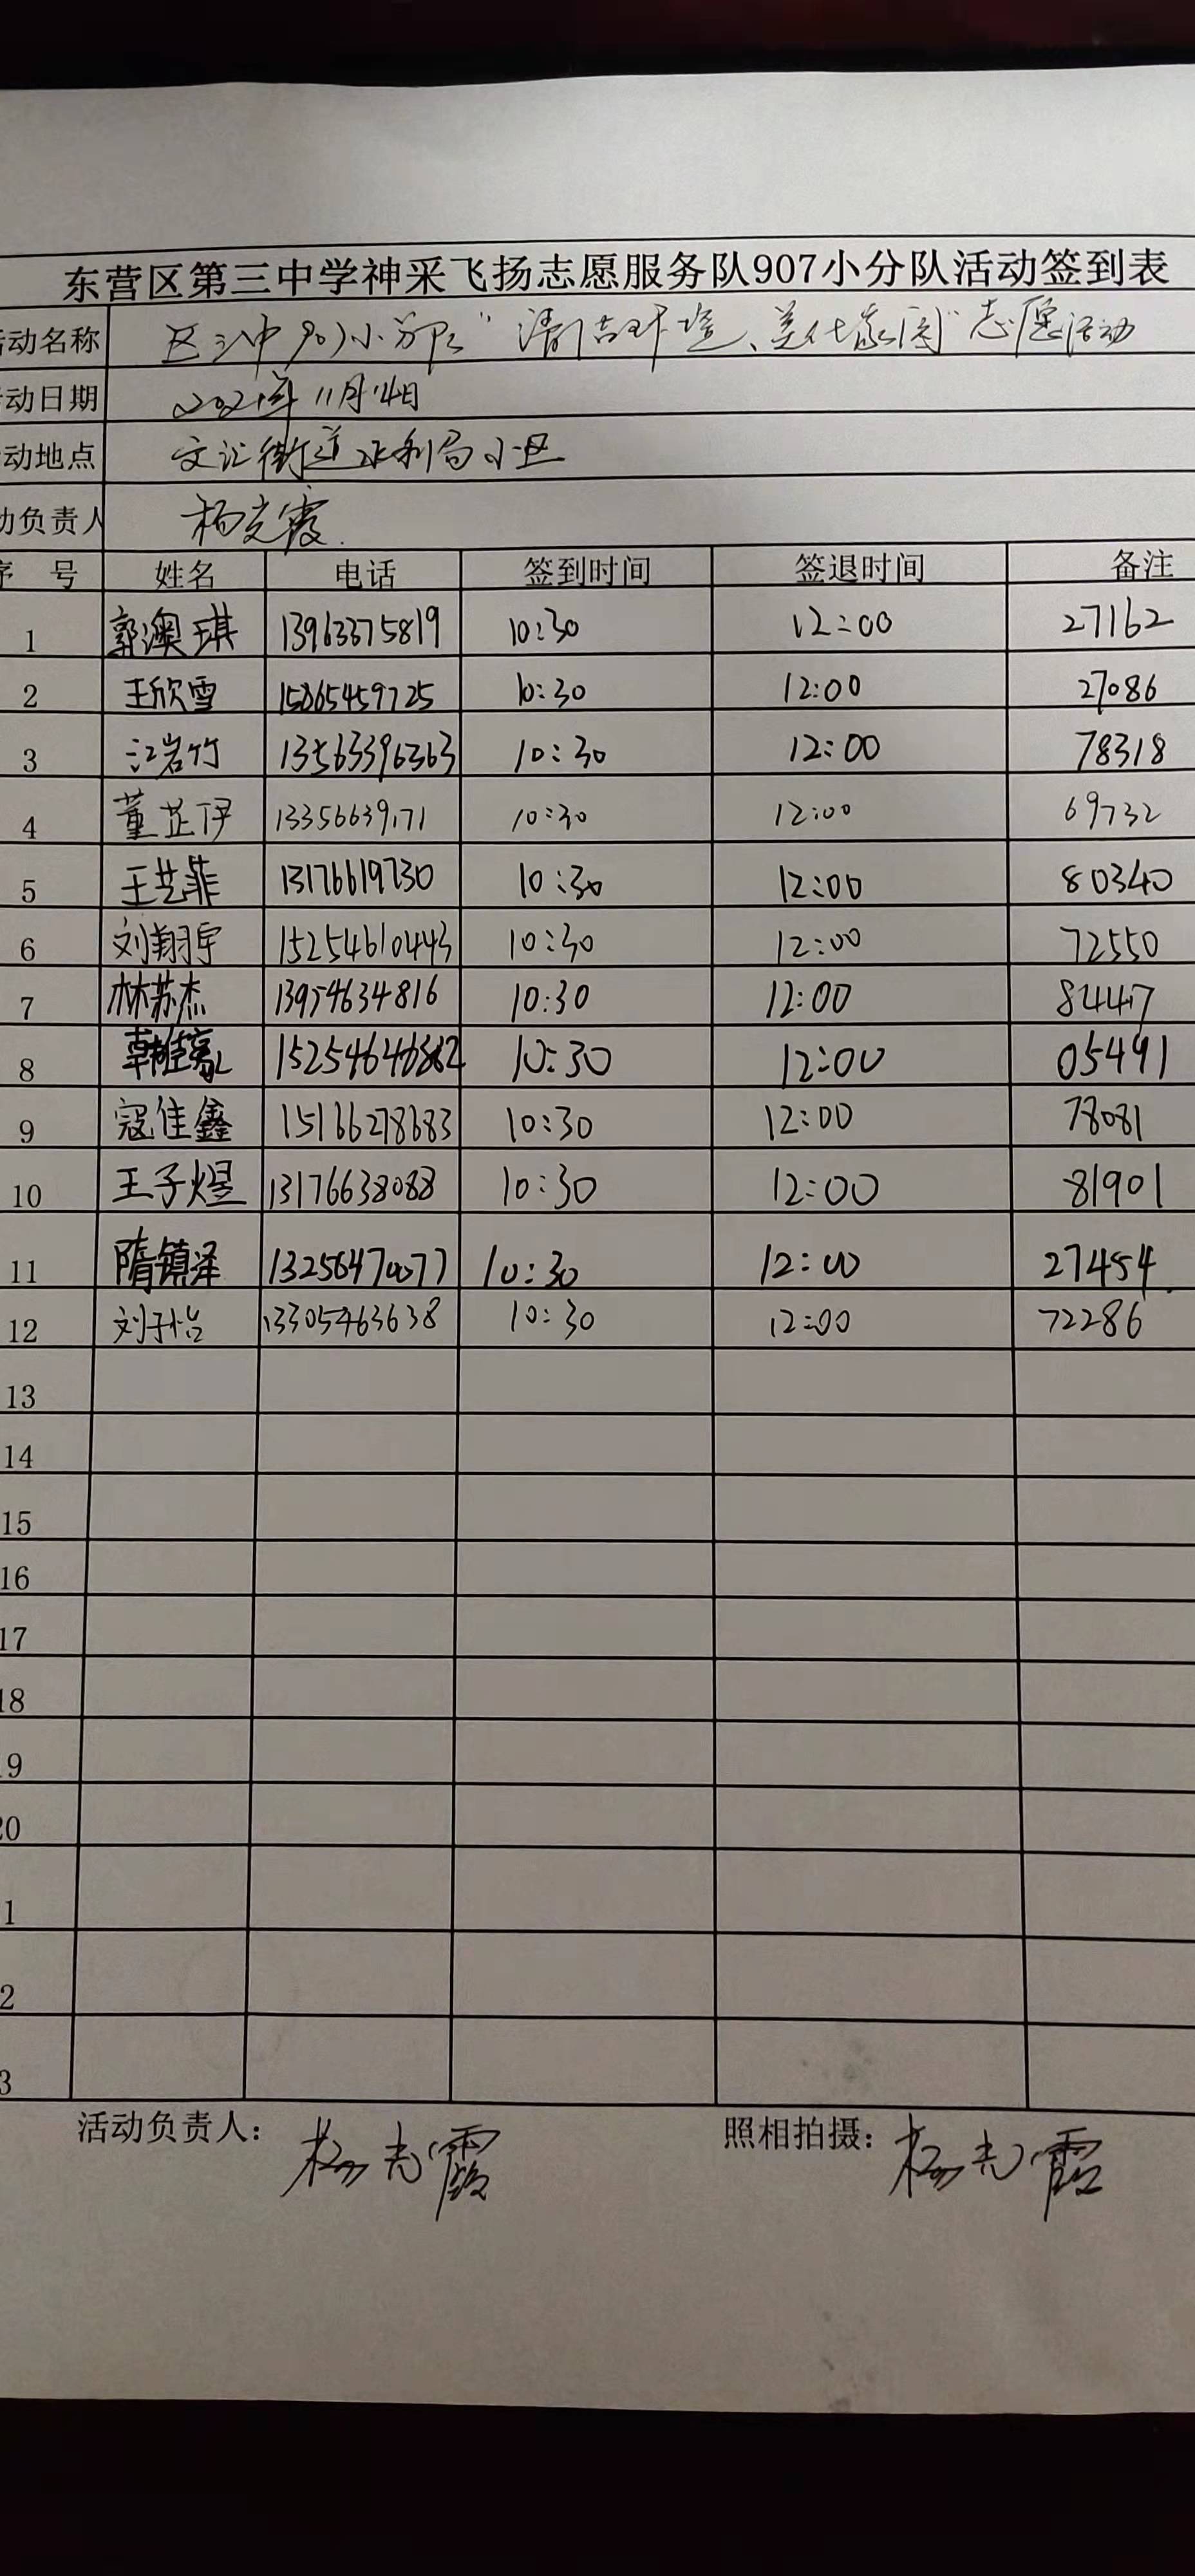 东营区第三中学神采飞扬志愿服务队907小分队活动签到表
活动名称 区三中907小分队“清洁环境、美化家园”志愿活动
动日期 2021年11月14日
动地点 文汇街道水利局小区
动负责人 杨光霞
序 号 姓名 电话 签到时间 签退时间 备注
1 郭澳琪 13963375819 10:30 12:00 27162
2 王欣雪 15865459725 10:30 12:00 27086
3 江岩竹 13563396363 10:30 12:00 78318
4 董芷伊 13356639171 10:30 12:00 69732
5 王艺菲 13176619730 10:30 12:00 80340
6 刘翔宇 15254610443 10:30 12:00 72550
7 林苏杰 13954634816 10:30 12:00 84447
8 10:30 12:00 05491
9 寇佳鑫 15166278683 10:30 12:00 78081
10 王子煜 13176638088 10:30 12:00 81901
11 隋镇泽 13256470077 10:30 12:00 27454
12 刘子怡 13305463638 10:30 12:00 72286
13
14
15
16
17
18
19
20
1
2
3
活动负责人： 杨光霞 照相拍摄： 杨光霞